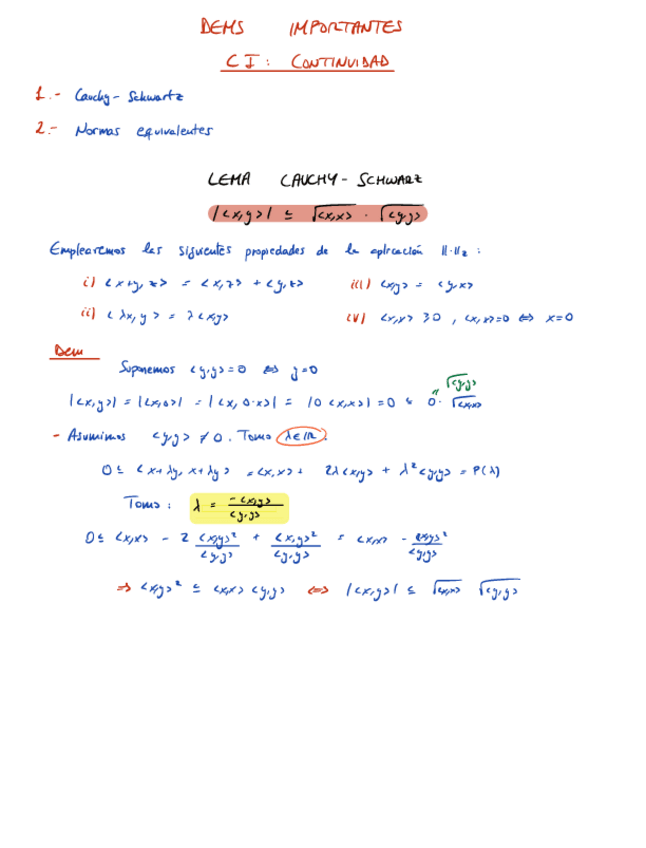 DEMS IMPORTANTES
C I : CONTINUIDAD
1.- Cauchy - Schwartz
2.- Normas equivalentes
LEMA CAUCHY - SCHWARZ
|<x,y>| ≤ √<x,x> · √<y,y>
Emplearemos las siguientes propiedades de la aplicación ||·||₂ :
i) <x+y, z> = <x,z> + <y,z> iii) <x,y> = <y,x>
ii) <λx, y> = λ<x,y> iv) <x,x> ≥ 0 , <x,x>=0 ⇔ x=0
Dem
Suponemos <y,y> = 0 ⇔ y=0
√<y,y>
"
|<x,y>| = |<x,0>| = |<x, 0·x>| = |0 <x,x>| = 0 ≤ 0 · √<x,x>
- Asumimos <y,y> ≠ 0. Tomo λ∈ℝ:
0 ≤ <x+λy, x+λy> = <x,x> + 2λ<x,y> + λ²<y,y> = P(λ)
Tomo : λ = -<x,y> / <y,y>
0 ≤ <x,x> - 2 <x,y>² / <y,y> + <x,y>² / <y,y> = <x,x> - <x,y>² / <y,y>
⇒ <x,y>² ≤ <x,x> <y,y> ⇔ |<x,y>| ≤ √<x,x> √<y,y>